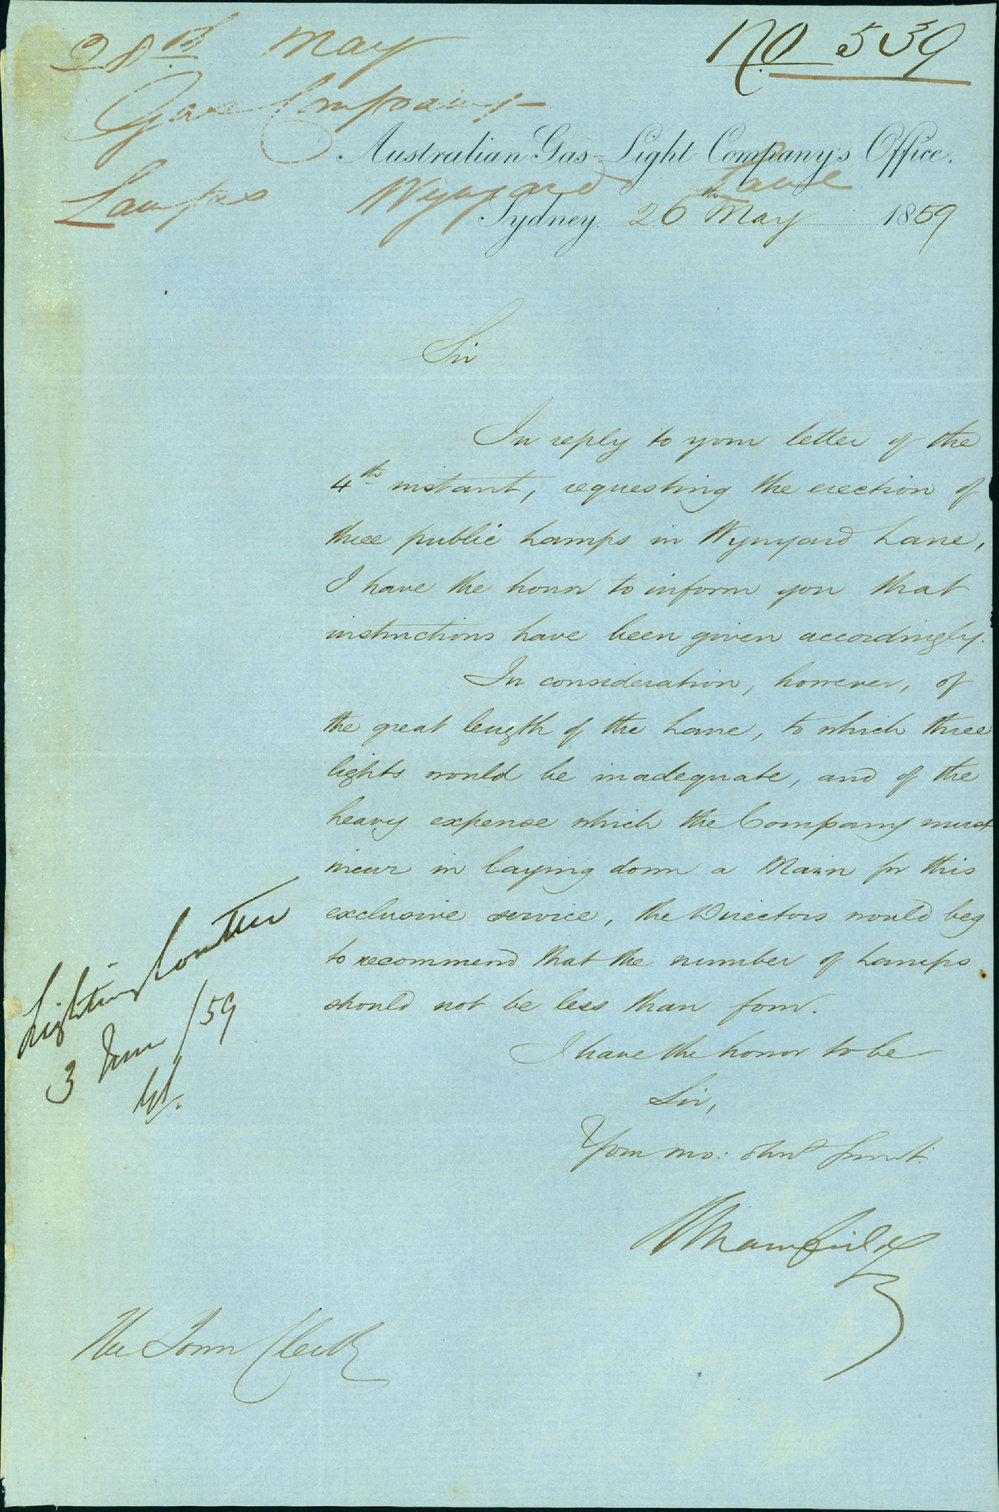 28th May
No 539
Gas Company
Australian Gas-Light Company's Office.
Lamps Wynyard Lane
Sydney. 26th May 1859
Sir
In reply to your letter of the
4th instant, requesting the erection of
three public Lamps in Wynyard Lane,
I have the honor to inform you that
instructions have been given accordingly.
In consideration, however, of
the great length of the Lane, to which three
lights would be inadequate, and of the
heavy expense which the Company must
incur in laying down a Main for this
exclusive service, the Directors would beg
to recommend that the number of Lamps
should not be less than four.
I have the honor to be
Sir,
Your mo: obnt servt:
Mansfield
Lighting Comttee
3 June /59
The Town Clerk